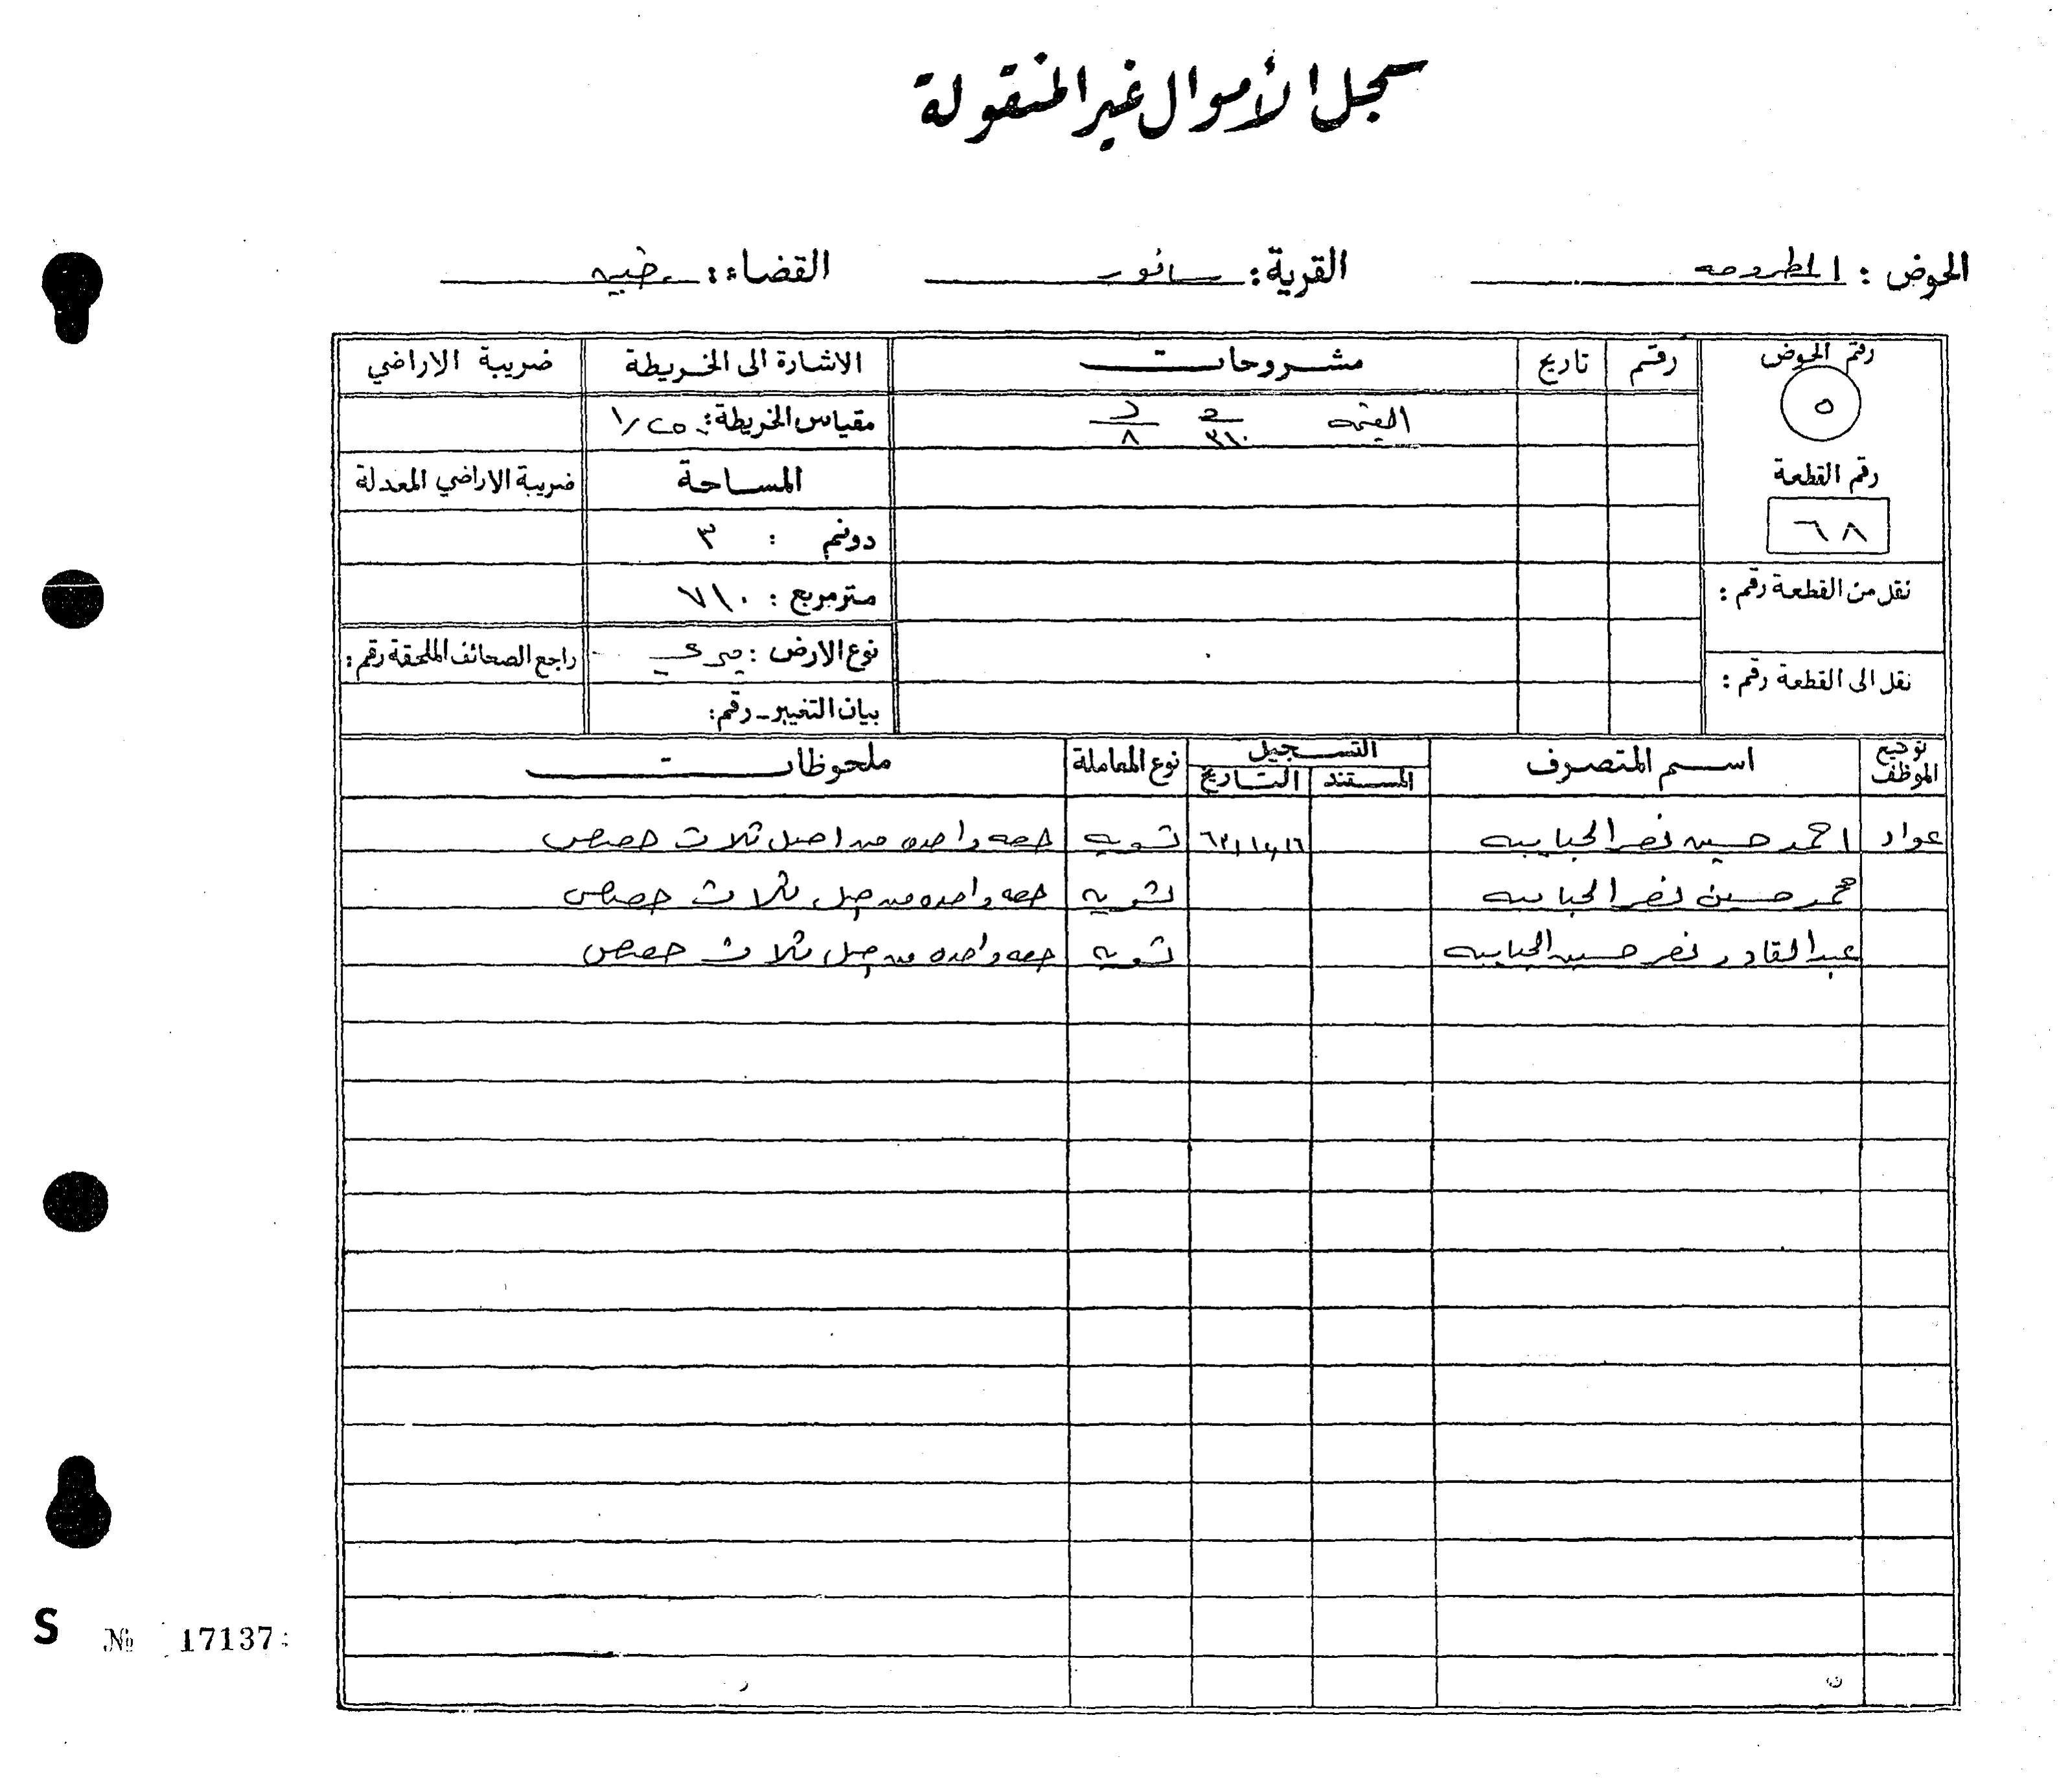 سجل الأموال غير المنقولة
الحوض : المطروحه القرية : سانور القضاء : جنين
رقم الحوض رقم تاريخ مشروحات الاشارة الى الخريطة ضريبة الاراضي
٥ القيمه ٣١٠ ٨ مقياس الخريطة :
رقم القطعة المساحة ضريبة الاراضي المعدلة
٦٨ دونم : ٣
نقل من القطعة رقم : متر مربع : ٧١٠
نوع الارض : ميري راجع الصحائف الملحقة رقم :
نقل الى القطعة رقم : بيان التغيير - رقم :
توقيع الموظف اسم المتصرف التسجيل نوع المعاملة ملحوظات
المستند التاريخ
عواد احمد حسين نصر الحبايبه تسويه حصه واحده من اصل ثلاث حصص
محمد حسين نصر الحبايبه تسويه حصه واحده من اصل ثلاث حصص
عبد القادر نصر حسين الحبايبه تسويه حصه واحده من اصل ثلاث حصص
S № 17137